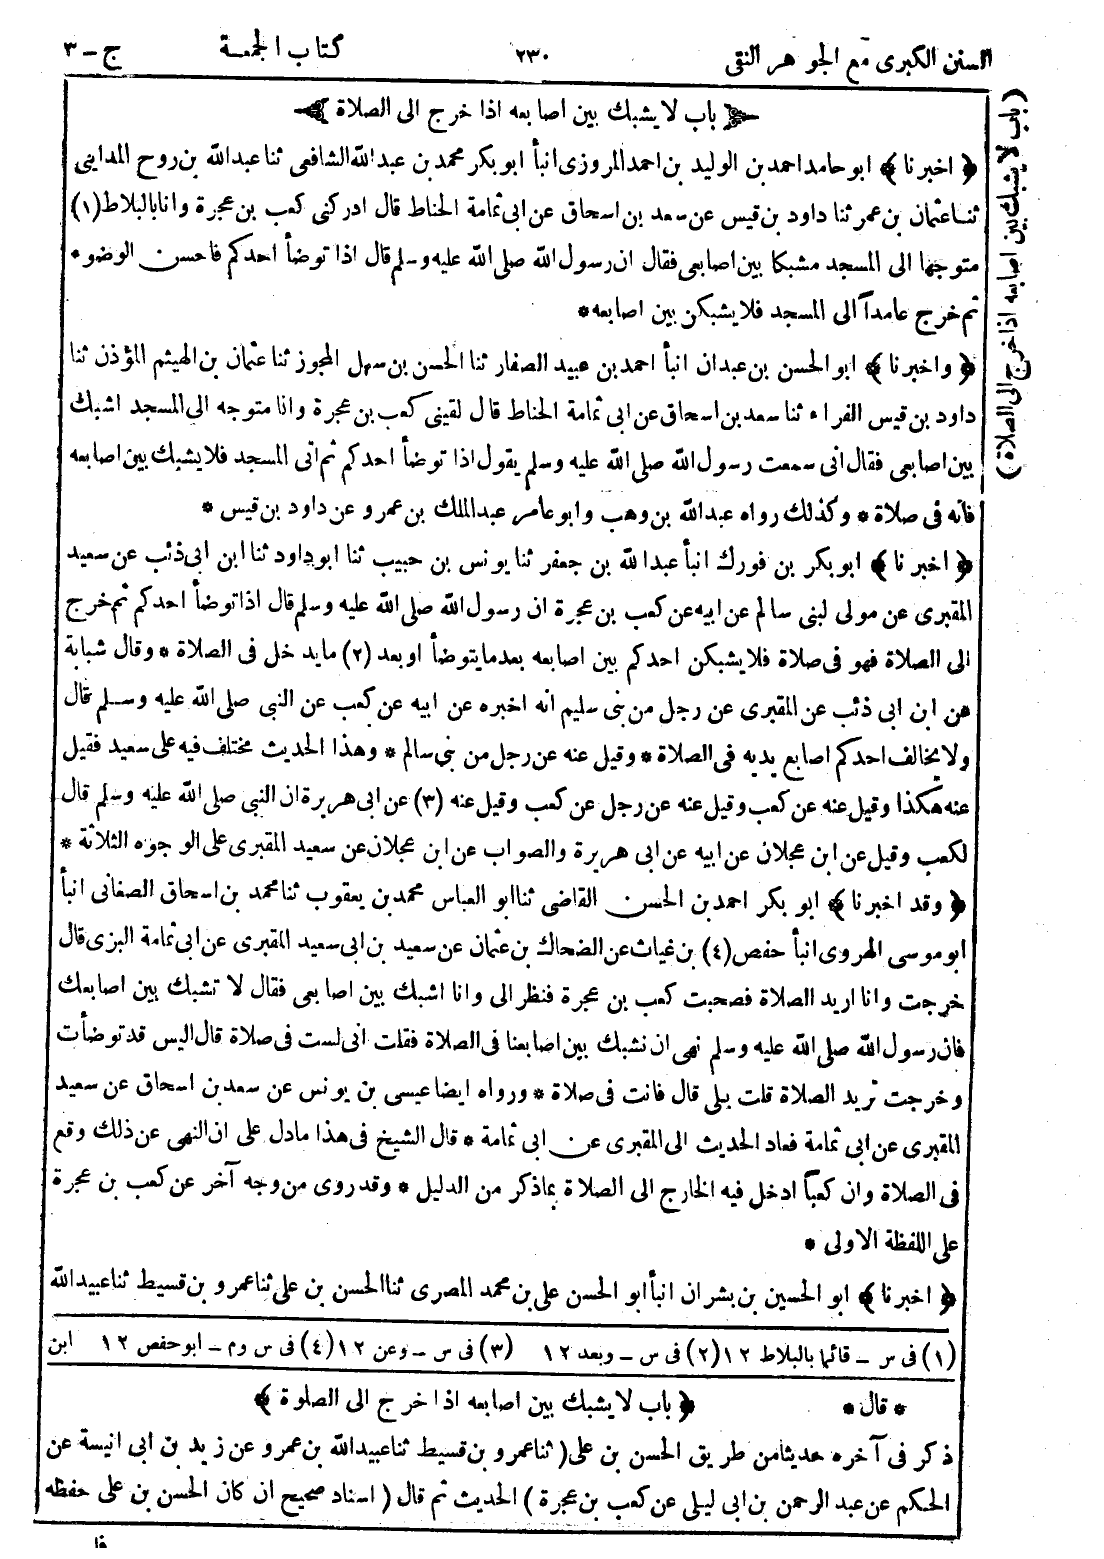 السنن الكبرى مع الجوهر النقى ٢٣٠ كتاب الجمعة ج - ٣
(باب لا يشبك بين اصابعه اذا خرج الى الصلاة)
﴿ باب لا يشبك بين اصابعه اذا خرج الى الصلاة ﴾
﴿ اخبرنا ﴾ ابو حامد احمد بن الوليد بن احمد المروزى انبأ ابو بكر محمد بن عبد الله الشافعى ثنا عبد الله بن روح المداينى
ثنا عثمان بن عمر ثنا داود بن قيس عن سعد بن اسحاق عن ابى ثمامة الحناط قال ادركنى كعب بن عجرة وانا بالبلاط (١)
متوجها الى المسجد مشبكا بين اصابعى فقال ان رسول الله صلى الله عليه وسلم قال اذا توضأ احدكم فاحسن الوضوء
ثم خرج عامدا الى المسجد فلا يشبكن بين اصابعه *
﴿ واخبرنا ﴾ ابو الحسن بن عبدان انبأ احمد بن عبيد الصفار ثنا الحسن بن سهل المجوز ثنا عثمان بن الهيثم المؤذن ثنا
داود بن قيس الفراء ثنا سعد بن اسحاق عن ابى ثمامة الحناط قال لقينى كعب بن عجرة وانا متوجه الى المسجد اشبك
بين اصابعى فقال انى سمعت رسول الله صلى الله عليه وسلم يقول اذا توضأ احدكم ثم اتى المسجد فلا يشبك بين اصابعه
فانه فى صلاة * وكذلك رواه عبد الله بن وهب وابو عامر عبد الملك بن عمرو عن داود بن قيس *
﴿ اخبرنا ﴾ ابو بكر بن فورك انبأ عبد الله بن جعفر ثنا يونس بن حبيب ثنا ابو داود ثنا ابن ابى ذئب عن سعيد
المقبرى عن مولى لبنى سالم عن ابيه عن كعب بن عجرة ان رسول الله صلى الله عليه وسلم قال اذا توضأ احدكم ثم خرج
الى الصلاة فهو فى صلاة فلا يشبكن احدكم بين اصابعه بعد ما يتوضأ او بعد (٢) ما يدخل فى الصلاة * وقال شبابة
عن ابن ابى ذئب عن المقبرى عن رجل من بنى سليم انه اخبره عن ابيه عن كعب عن النبى صلى الله عليه وسلم قال
ولا يخالف احدكم اصابع يديه فى الصلاة * وقيل عنه عن رجل من بنى سالم * وهذا الحديث مختلف فيه على سعيد فقيل
عنه هكذا وقيل عنه عن كعب وقيل عنه عن رجل عن كعب وقيل عنه (٣) عن ابى هريرة ان النبى صلى الله عليه وسلم قال
لكعب وقيل عن ابن عجلان عن ابيه عن ابى هريرة والصواب عن ابن عجلان عن سعيد المقبرى على الوجوه الثلاثة *
﴿ وقد اخبرنا ﴾ ابو بكر احمد بن الحسن القاضى ثنا ابو العباس محمد بن يعقوب ثنا محمد بن اسحاق الصغانى انبأ
ابو موسى الهروى انبأ حفص (٤) بن غياث عن الضحاك بن عثمان عن سعيد بن ابى سعيد المقبرى عن ابى ثمامة البزى قال
خرجت وانا اريد الصلاة فصحبت كعب بن عجرة فنظر الى وانا اشبك بين اصابعى فقال لا تشبك بين اصابعك
فان رسول الله صلى الله عليه وسلم نهى ان نشبك بين اصابعنا فى الصلاة فقلت انى لست فى صلاة قال اليس قد توضأت
وخرجت تريد الصلاة قلت بلى قال فانت فى صلاة * ورواه ايضا عيسى بن يونس عن سعد بن اسحاق عن سعيد
المقبرى عن ابى ثمامة فعاد الحديث الى المقبرى عن ابى ثمامة * قال الشيخ فى هذا ما دل على ان النهى عن ذلك وقع
فى الصلاة وان كعبا ادخل فيه الخارج الى الصلاة بما ذكر من الدليل * وقد روى من وجه آخر عن كعب بن عجرة
على اللفظة الاولى *
﴿ اخبرنا ﴾ ابو الحسين بن بشران انبأ ابو الحسن على بن محمد المصرى ثنا الحسن بن على ثنا عمرو بن قسيط ثنا عبيد الله
(١) فى س - قائما بالبلاط ١٢ (٢) فى س - وبعد ١٢ (٣) فى س - وعن ١٢ (٤) فى س وم - ابو حفص ١٢ ابن
* قال * ﴿ باب لا يشبك بين اصابعه اذا خرج الى الصلوة ﴾
ذكر فى آخره حديثا من طريق الحسن بن على ( ثنا عمرو بن قسيط ثنا عبيد الله بن عمرو عن زيد بن ابى انيسة عن
الحكم عن عبد الرحمن بن ابى ليلى عن كعب بن عجرة ) الحديث ثم قال ( اسناد صحيح ان كان الحسن بن على حفظه
فا